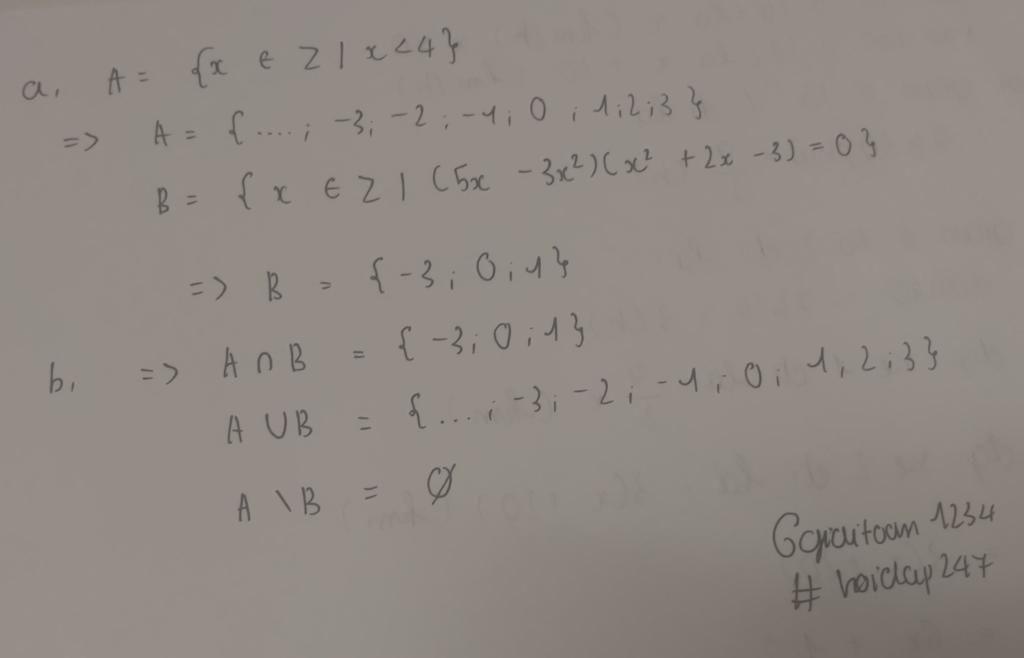 a, A = {x ∈ Z | x < 4}
=> A = {....; -3; -2; -1; 0; 1; 2; 3}
B = {x ∈ Z | (5x - 3x²)(x² + 2x - 3) = 0}
=> B = {-3; 0; 1}
b, => A ∩ B = {-3; 0; 1}
A ∪ B = {...; -3; -2; -1; 0; 1; 2; 3}
A \ B = ∅
1234
# hoidap 247